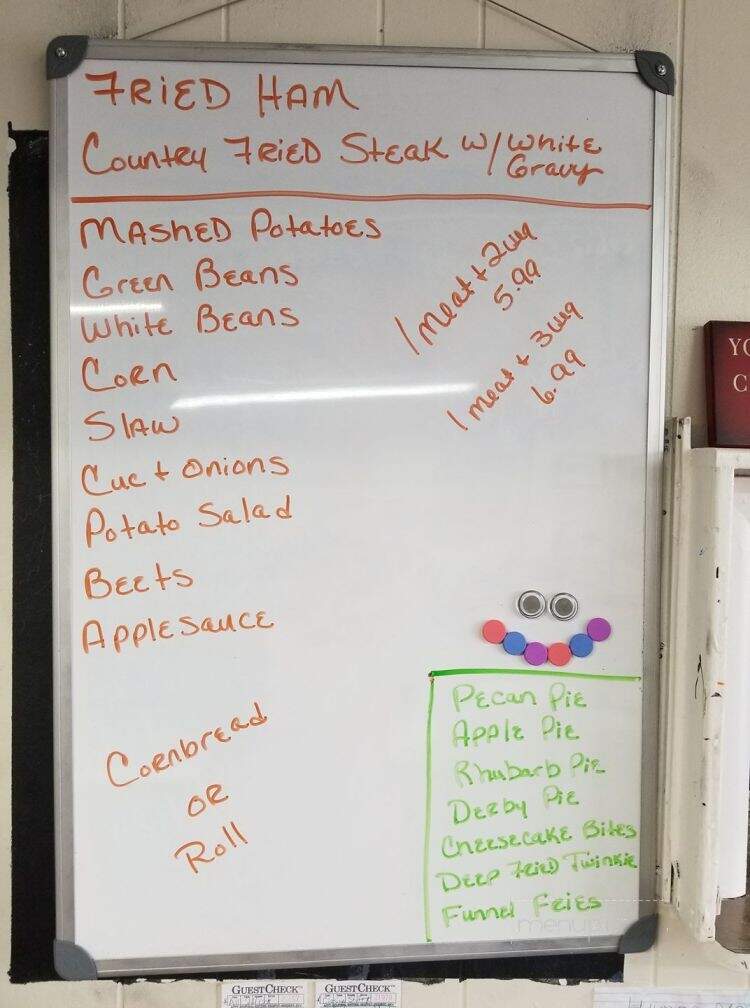 FRIED HAM
COUNTRY FRIED STEAK W/ WHITE
GRAVY
MASHED POTATOES
GREEN BEANS
WHITE BEANS
CORN
SLAW
CUC + ONIONS
POTATO SALAD
BEETS
APPLESAUCE
1 meat + 2 veg
5.99
1 meat + 3 veg
6.99
CORNBREAD
OR
ROLL
PECAN PIE
APPLE PIE
Rhubarb PIE
DERBY PIE
CHEESECAKE BITES
DEEP FRIED TWINKIE
FUNNEL FRIES
YO
C
GUESTCHECK™
GUESTCHECK™